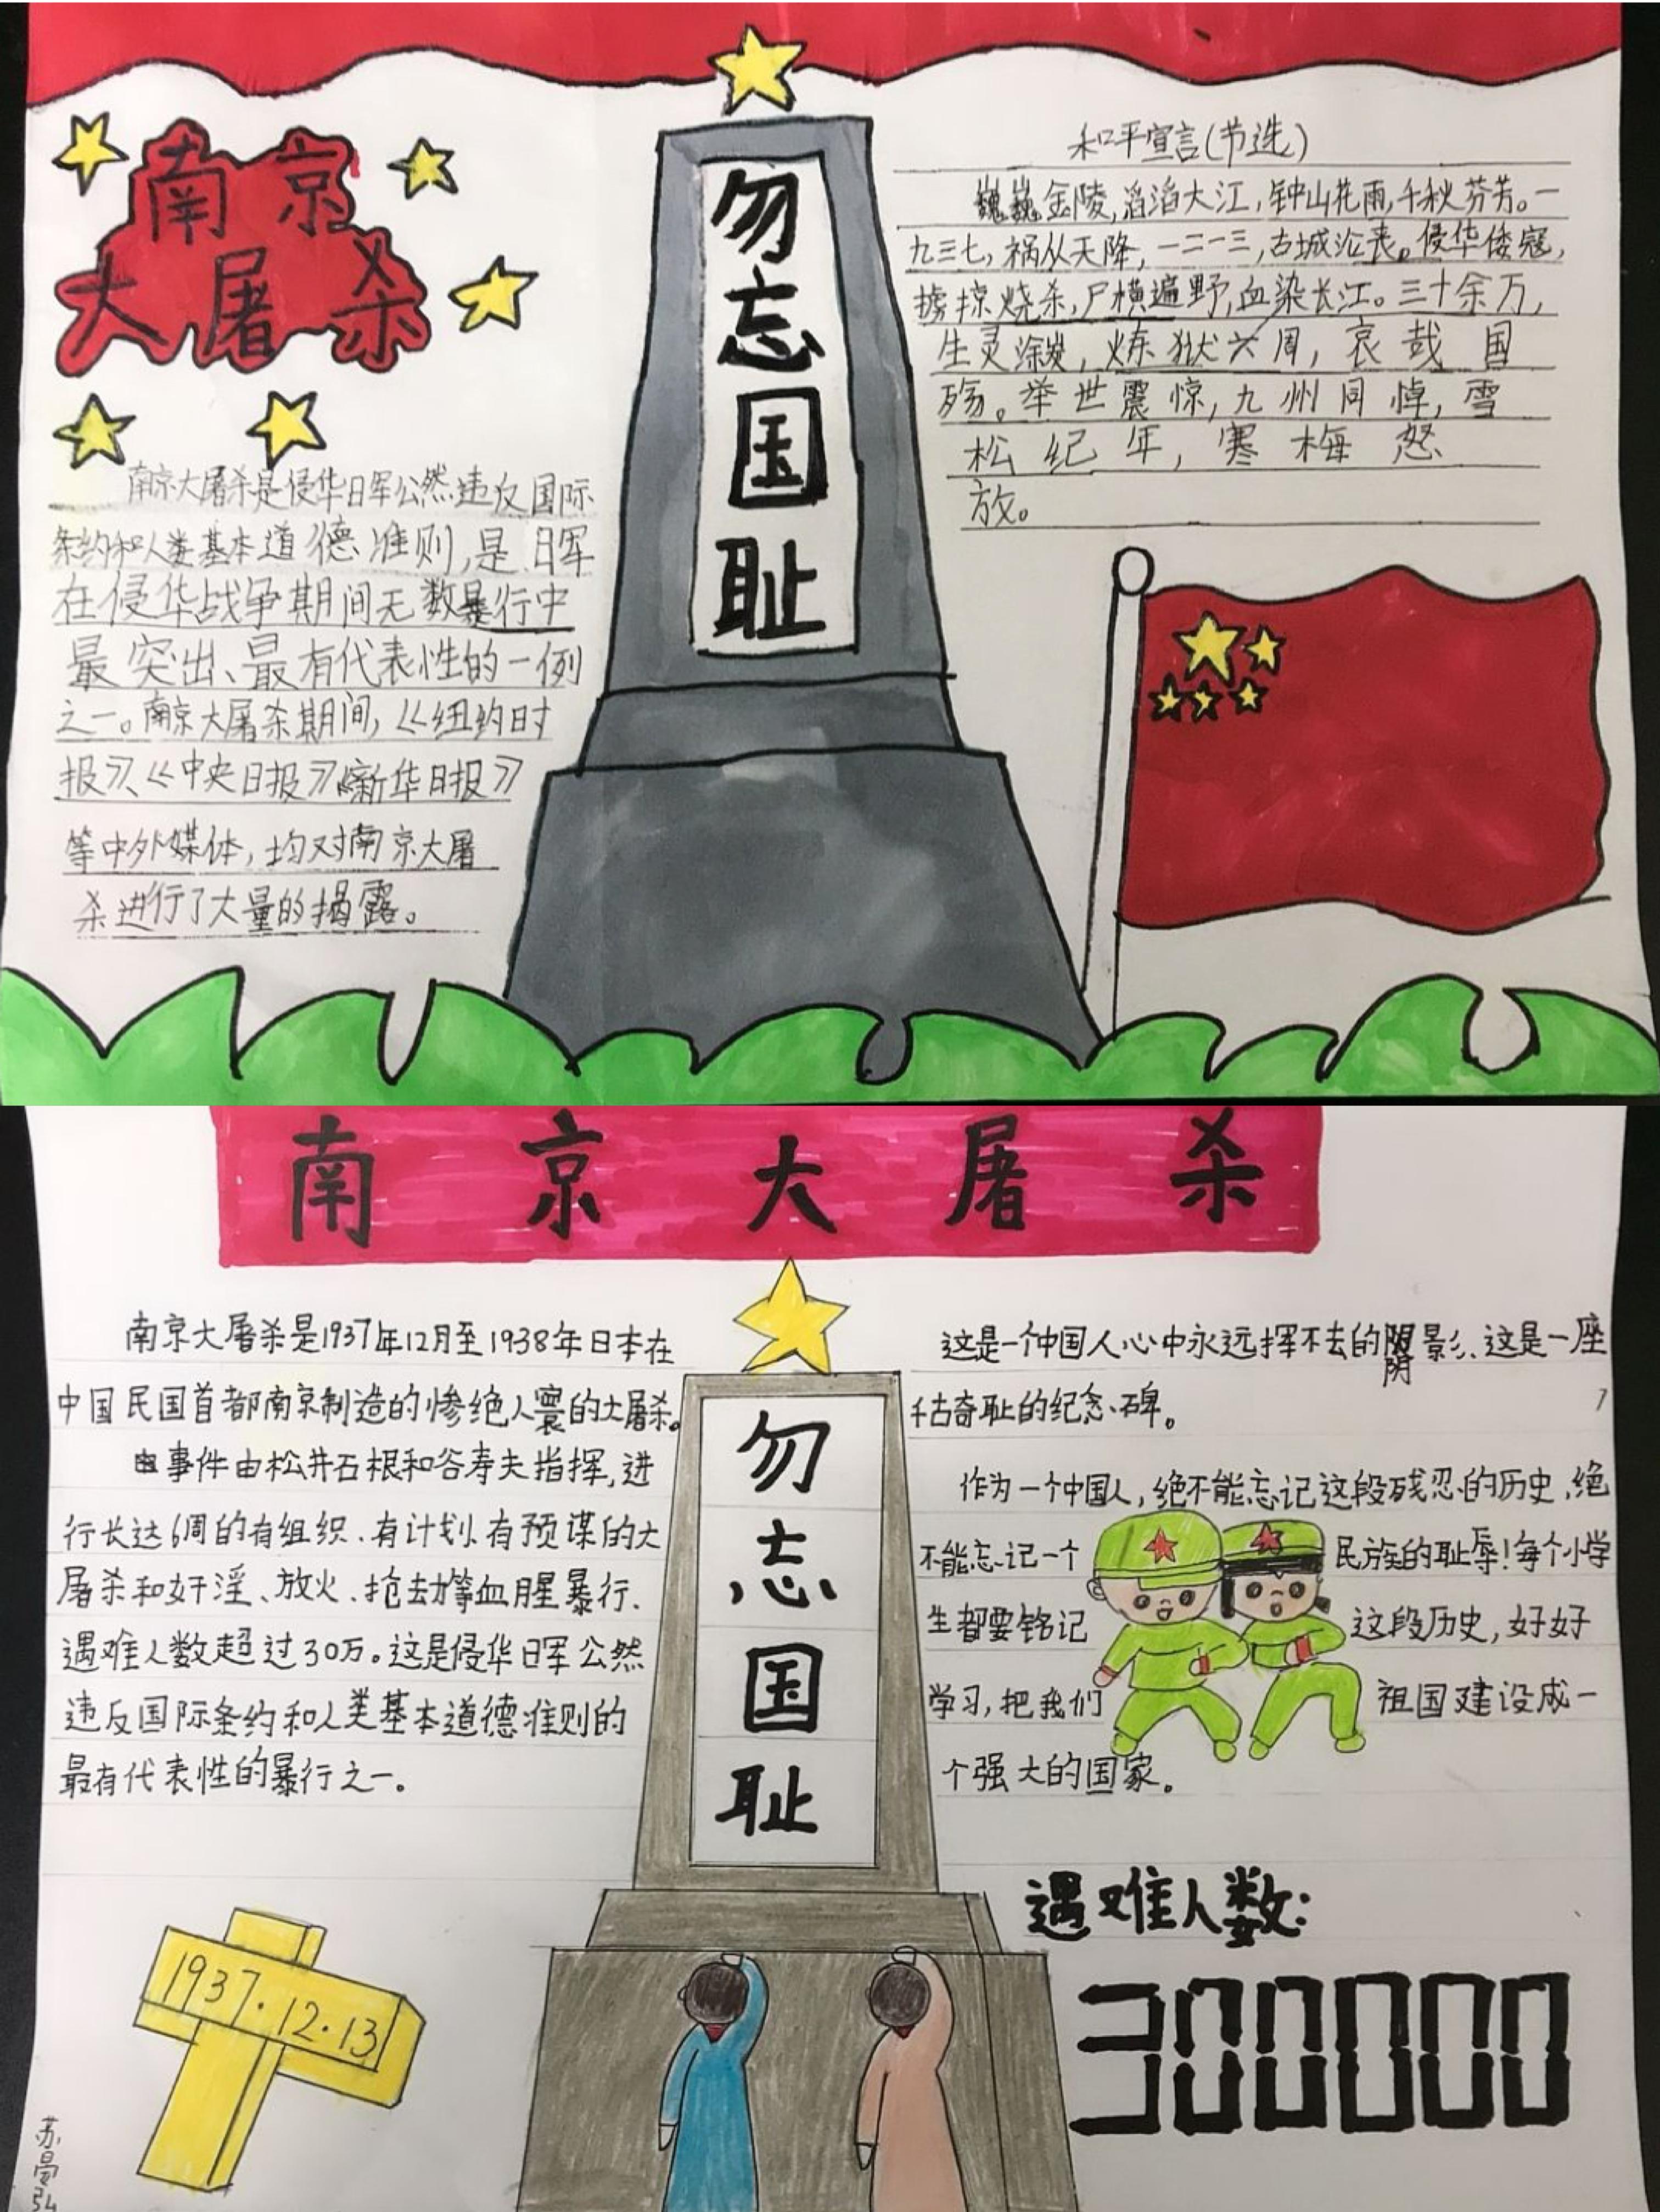 南京
大屠杀
南京大屠杀是侵华日军公然违反国际
条约和人类基本道德准则,是日军
在侵华战争期间无数暴行中
最突出、最有代表性的一例
之一。南京大屠杀期间,《纽约时
报》、《中央日报》《新华日报》
等中外媒体,均对南京大屠
杀进行了大量的揭露。
勿
忘
国
耻
和平宣言(节选)
巍巍金陵,滔滔大江,钟山花雨,千秋芬芳。一
九三七,祸从天降,一二一三,古城沦丧。侵华倭寇,
掳掠烧杀,尸横遍野,血染长江。三十余万,
生灵涂炭,炼狱六周,哀哉国
殇。举世震惊,九州同悼,雪
松纪年,寒梅怒
放。
南京大屠杀
南京大屠杀是1937年12月至1938年日本在
中国民国首都南京制造的惨绝人寰的大屠杀。
事件由松井石根和谷寿夫指挥,进
行长达6周的有组织、有计划、有预谋的大
屠杀和奸淫、放火、抢劫等血腥暴行、
遇难人数超过30万。这是侵华日军公然
违反国际条约和人类基本道德准则的
最有代表性的暴行之一。
勿
忘
国
耻
这是一个中国人心中永远挥不去的阴影、这是一座
千古奇耻的纪念碑。
作为一个中国人,绝不能忘记这段残忍的历史,绝
不能忘记一个民族的耻辱!每个小学
生都要铭记这段历史,好好
学习,把我们祖国建设成一
个强大的国家。
遇难人数:
300000
1937.12.13